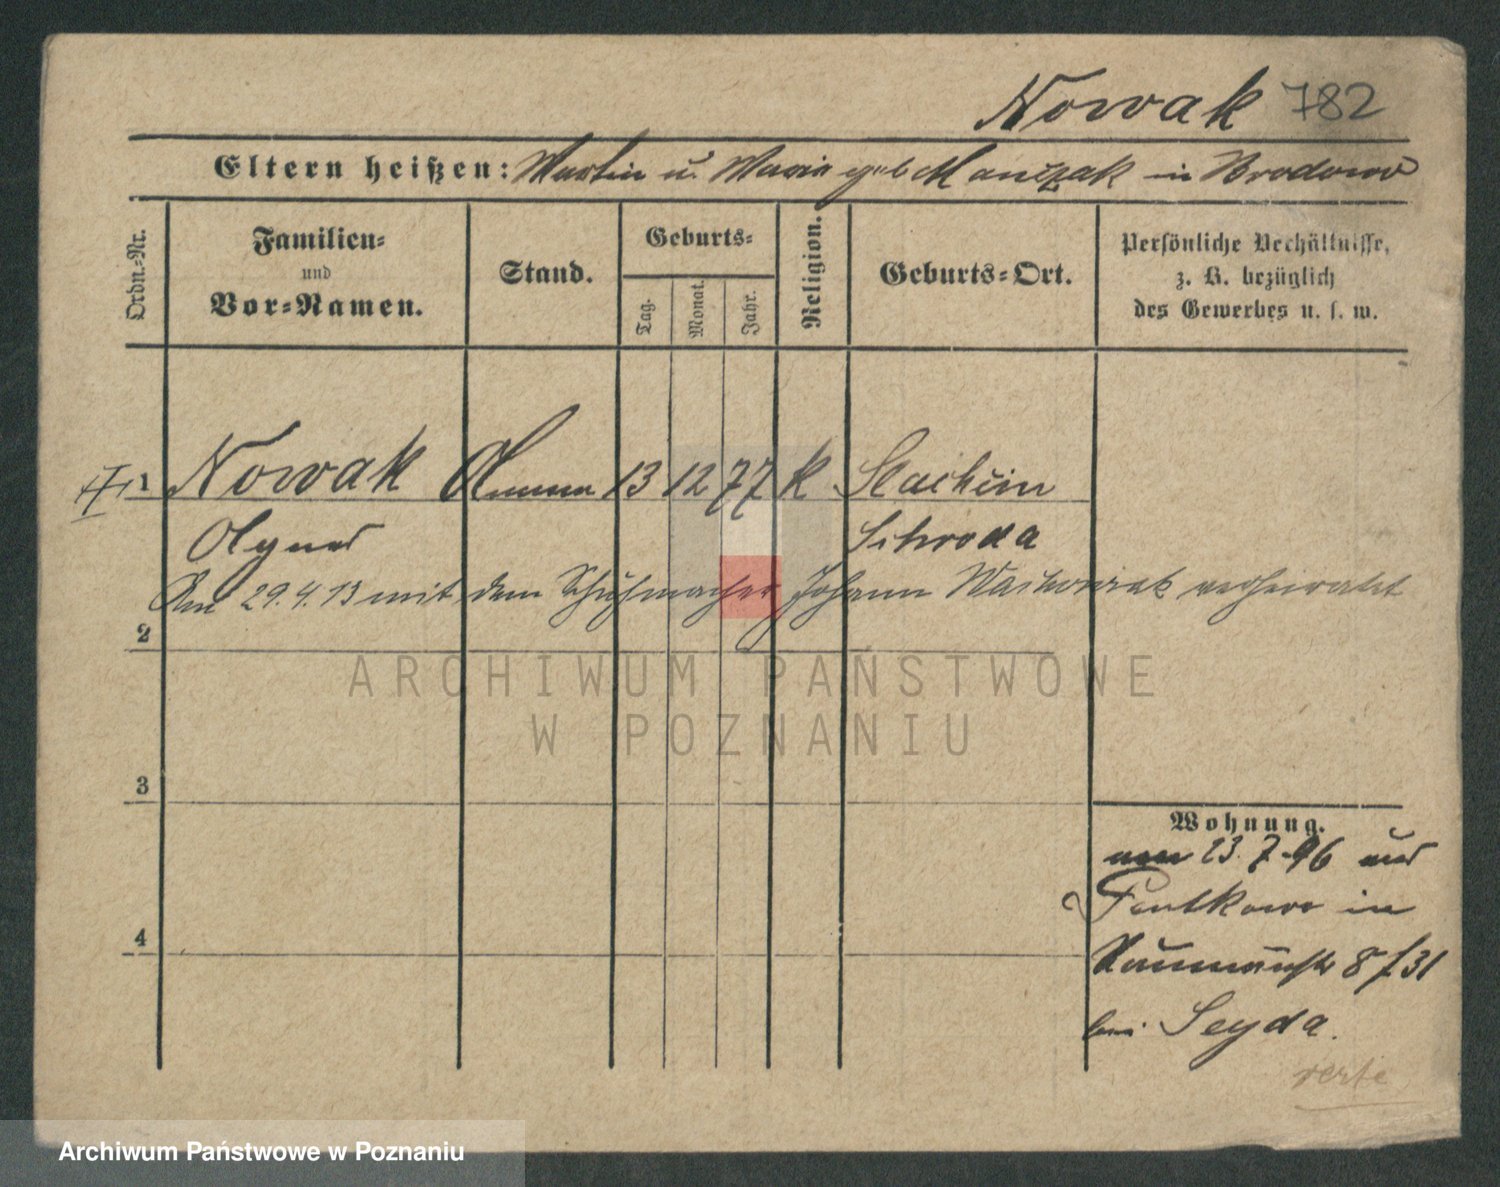 Nowak 782
Eltern heißen: Martin u. Maria geb Mańczak in Brodowo
Ordn.-Nr.
Familien-
und
Vor-Namen.
Stand.
Geburts-
Tag.
Monat.
Jahr.
Religion.
Geburts-Ort.
Persönliche Verhältnisse,
z. B. bezüglich
des Gewerbes u. s. w.
1 Nowak 13 12 77 K
Agnes Schroda
Am 29.4.13 mit dem Schuhmacher Johann verheiratet
2
3
4
Wohnung.
23.7.96 aus
in
8 31
bei Seyda.
verte
ARCHIWUM PAŃSTWOWE
W POZNANIU
Archiwum Państwowe w Poznaniu